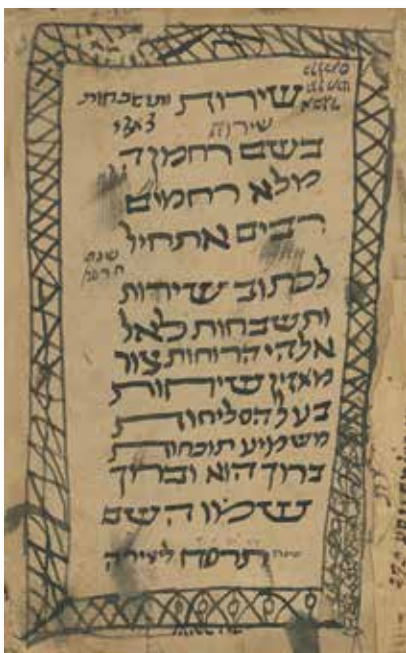 שירות ותשבחות
שירות
בשם רחמנא
מלא רחמים
רבים אתחיל
לכתוב שירות
ותשבחות לאל
אלהי הרוחות צור
מאזין שיחות
בעל הסליחות
משמיע תוכחות
ברוך הוא וברוך
שמו השם
שנת תרסח ליצירה